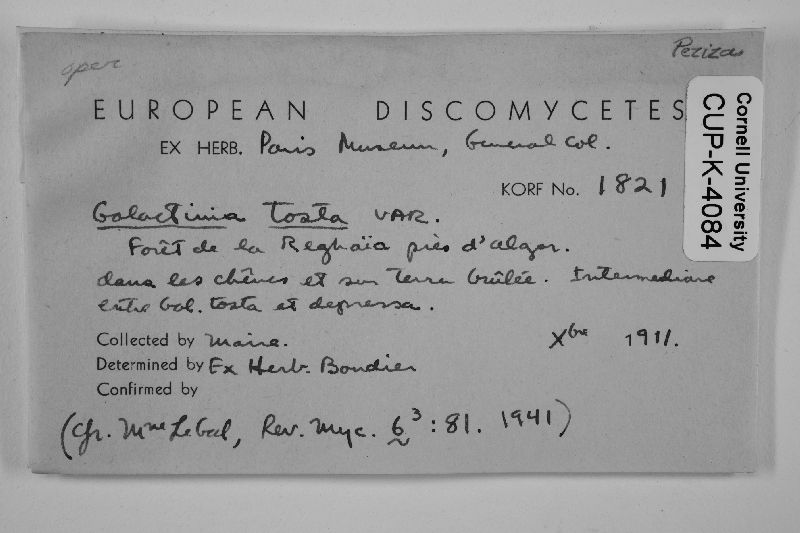 oper
Peziza
EUROPEAN DISCOMYCETES
EX HERB. Paris Museum, General Col.
KORF No. 1821
Cornell University
CUP-K-4084
Galactinia tosta VAR.
Forêt de la Reghaïa près d'Alger.
dans les chênes et sur terre brûlée. Intermediaire
entre Gal. tosta et depressa.
Collected by Maire. Xbre 1911.
Determined by Ex Herb. Boudier
Confirmed by
(Cfr. Mme LeGal, Rev. Myc. 6³: 81. 1941)